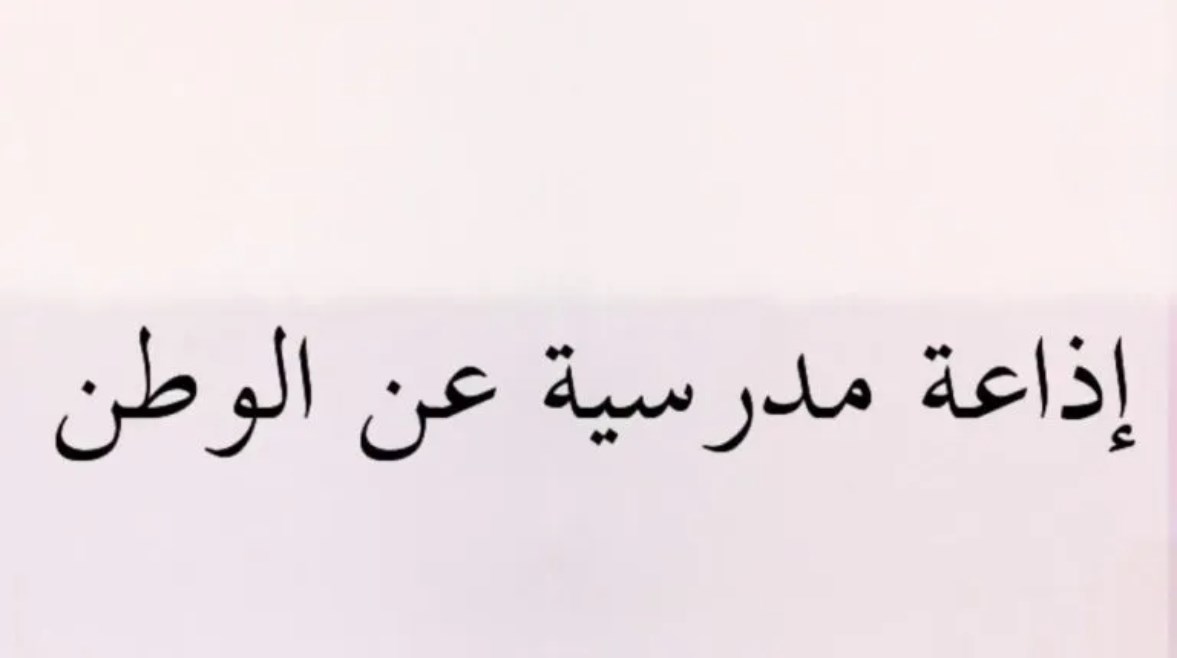 إذاعة مدرسية عن الوطن